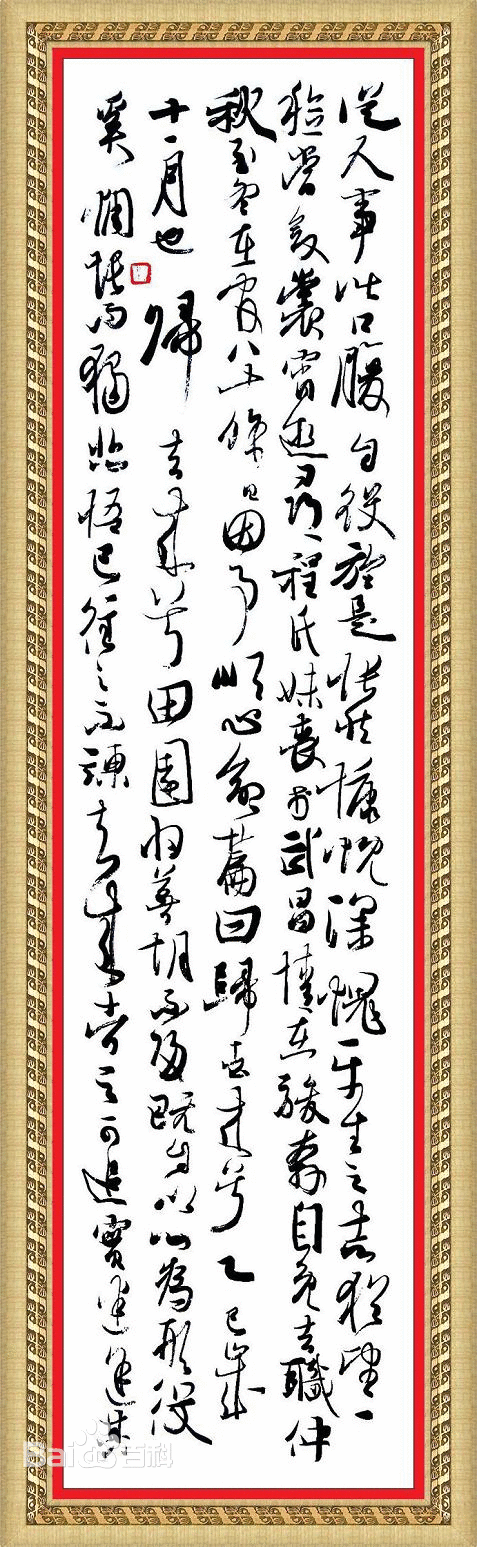 從人事皆口腹自役於是悵然慷慨深愧平生之志猶望一
稔當斂裳宵逝尋程氏妹喪于武昌情在駿奔自免去職仲
秋至冬在官八十餘日因事順心命篇曰歸去來兮乙巳歲
十一月也 歸去來兮田園將蕪胡不歸既自以心為形役
奚惆悵而獨悲悟已往之不諫知來者之可追實迷途其
Bai百科